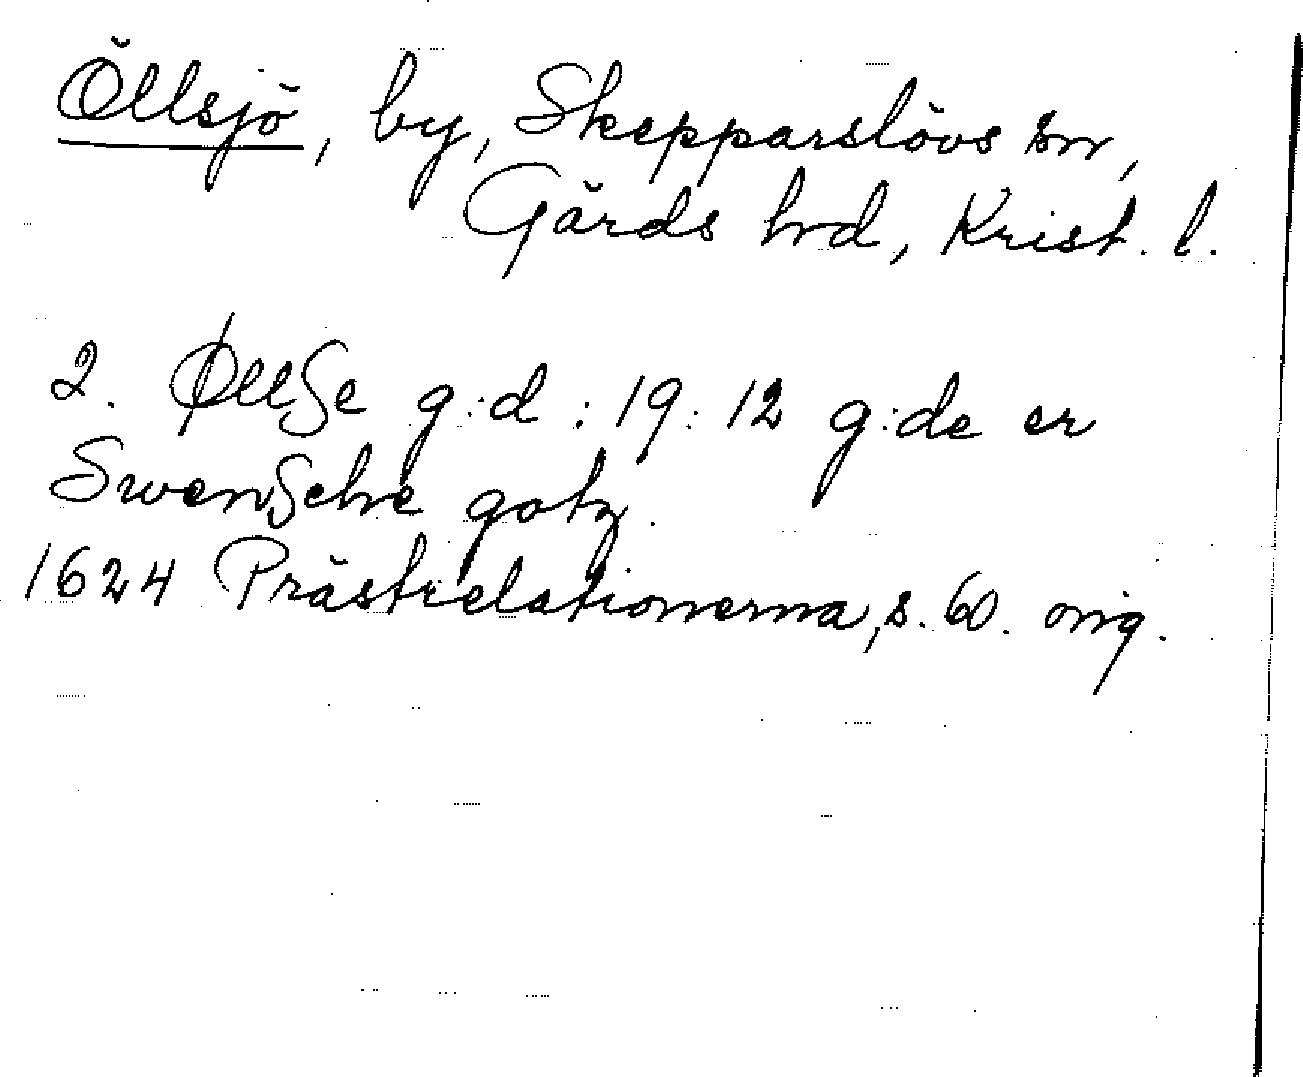 Öllsjö, by, Skepparslövs sn,
Gärds hd, Krist. l.
2. ØllSe g:d : 19 : 12 g:de er
SwenSche gotz.
1624 Prästrelationerna, s. 60. orig.